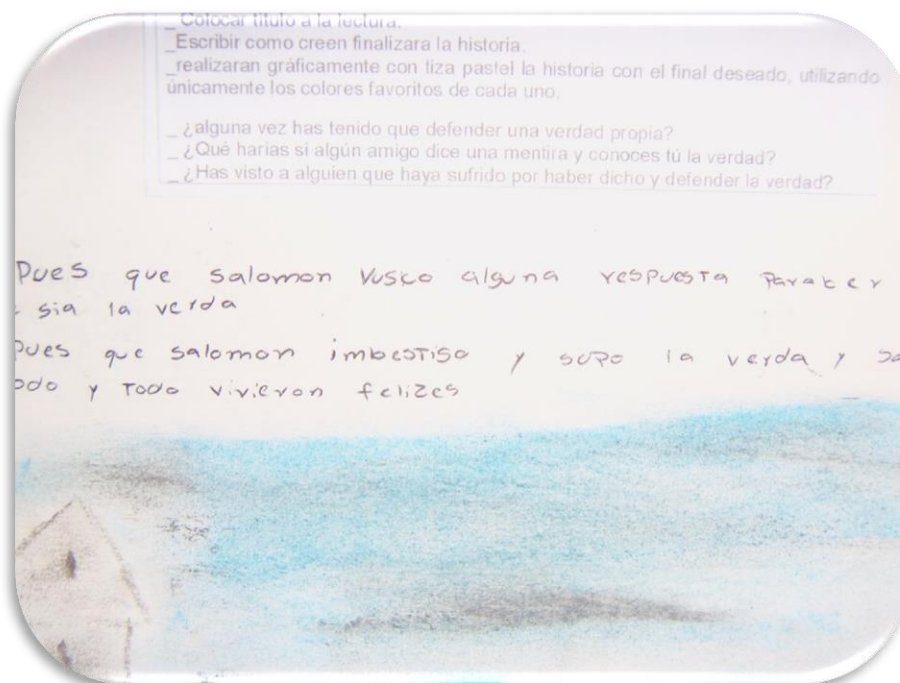 _ Colocar título a la lectura.
_Escribir como creen finalizara la historia.
_realizaran gráficamente con tiza pastel la historia con el final deseado, utilizando
únicamente los colores favoritos de cada uno.
_ ¿alguna vez has tenido que defender una verdad propia?
_ ¿Qué harías si algún amigo dice una mentira y conoces tú la verdad?
_ ¿Has visto a alguien que haya sufrido por haber dicho y defender la verdad?
Pues que salomon Vusco alguna respuesta
sia la verda
Pues que salomon imbestigo y supo la verda y
y Todo vivieron felizes